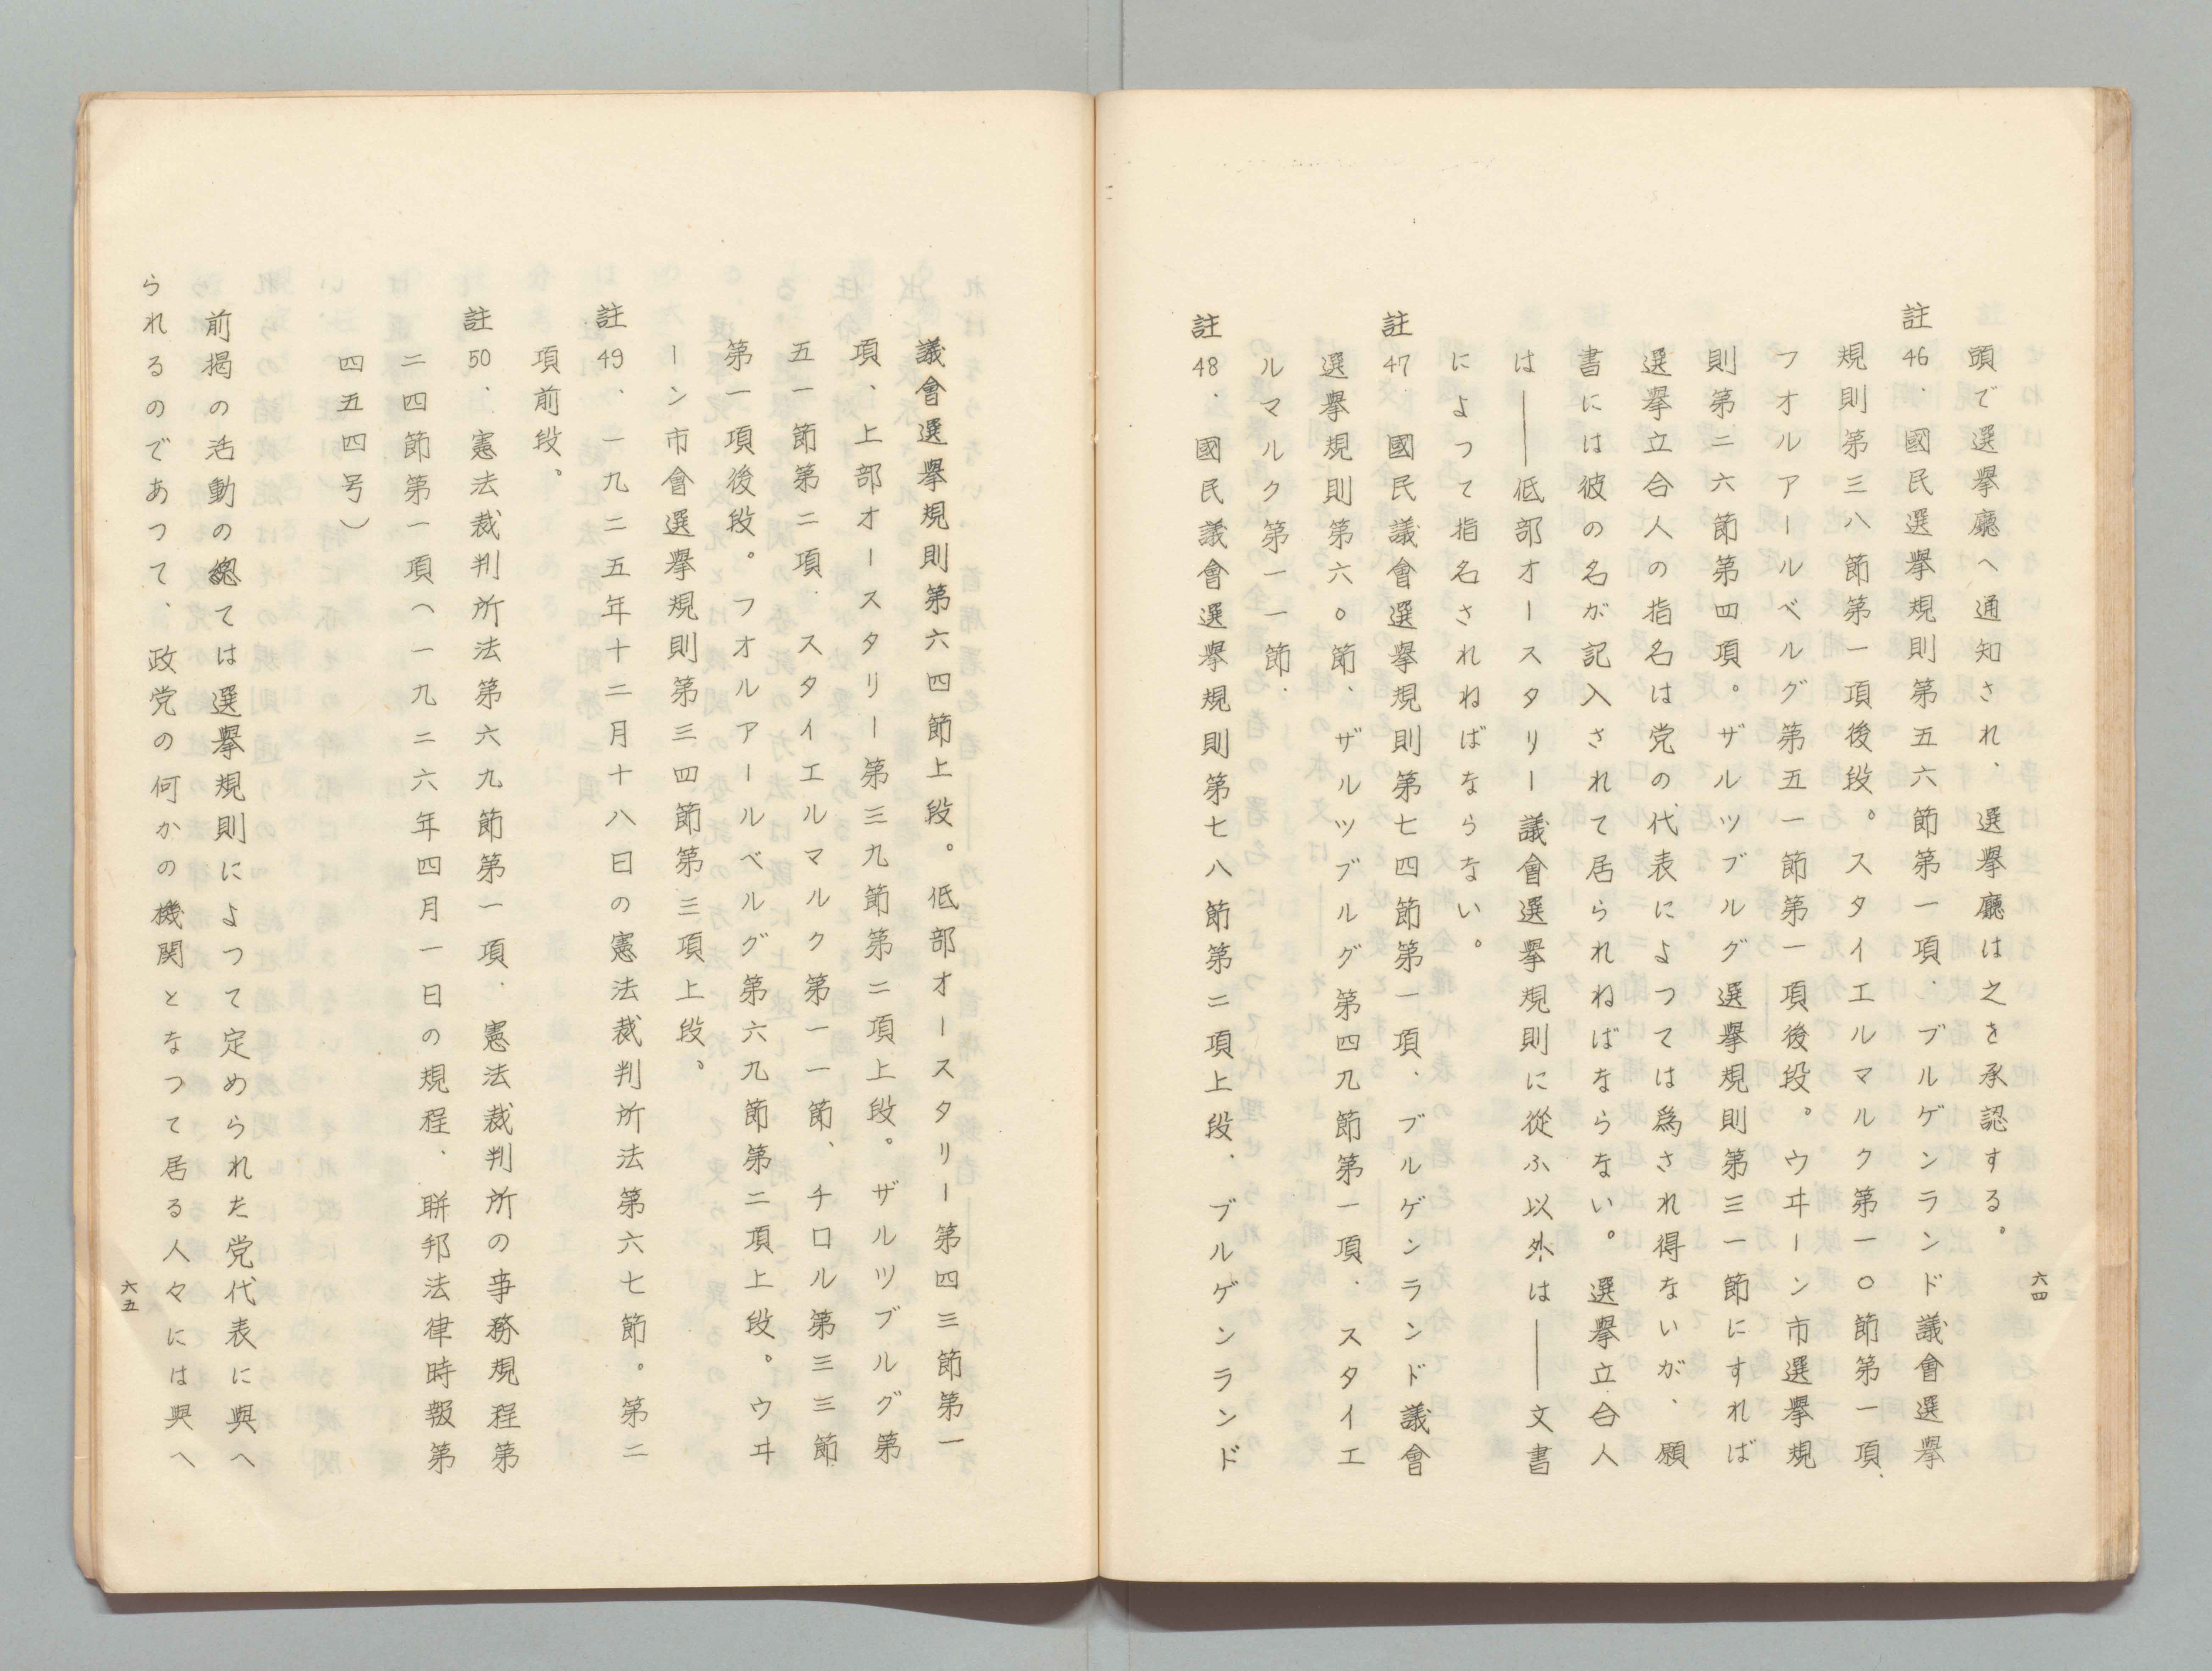 頭で選擧廳へ通知され、選擧廳は之を承認する。
註46．國民選擧規則第五六節第一項．ブルゲンランド議會選擧
規則第三八節第一項後段。スタイエルマルク第一〇節第一項．
フオルアールベルグ第五一節第一項後段。ウヰーン市選擧規
則第二六節第四項。ザルツブルグ選擧規則第三一節にすれば
選擧立合人の指名は党の代表によつては爲され得ないが、願
書には彼の名が記入されて居られねばならない。選擧立合人
は――低部オースタリー議會選擧規則に從ふ以外は――文書
によつて指名されねばならない。
註47．國民議會選擧規則第七四節第一項．ブルゲンランド議會
選擧規則第六〇節．ザルツブルグ第四九節第一項．スタイエ
ルマルク第一一節．
註48．國民議會選擧規則第七八節第二項上段．ブルゲンランド
六四
議會選擧規則第六四節上段。低部オースタリー第四三節第一
項、上部オースタリー第三九節第二項上段。ザルツブルグ第
五一節第二項．スタイエルマルク第一一節、チロル第三三節
第一項後段。フオルアールベルグ第六九節第二項上段。ウヰ
ーン市會選擧規則第三四節第三項上段。
註49．一九二五年十二月十八日の憲法裁判所法第六七節。第二
項前段。
註50．憲法裁判所法第六九節第一項．憲法裁判所の事務規程第
二四節第一項（一九二六年四月一日の規程、聯邦法律時報第
四五四号）
前揭の活動の總ては選擧規則によつて定められた党代表に與へ
られるのであつて、政党の何かの機関となつて居る人々には與へ
六五